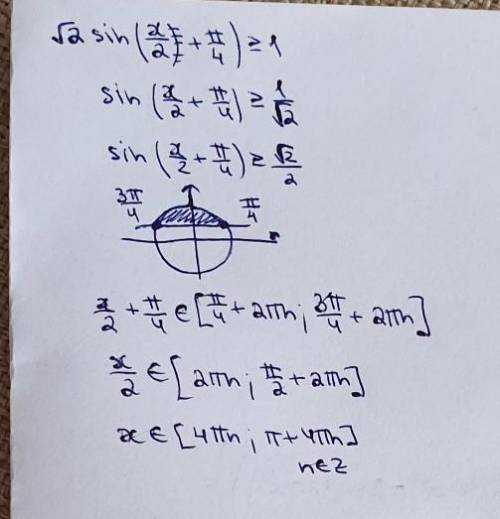 √2 sin(x/2 + π/4) ≥ 1
sin(x/2 + π/4) ≥ 1/√2
sin(x/2 + π/4) ≥ √2/2
3π/4 π/4
x/2 + π/4 ∈ [π/4 + 2πn; 3π/4 + 2πn]
x/2 ∈ [2πn; π/2 + 2πn]
x ∈ [4πn; π + 4πn]
n∈z